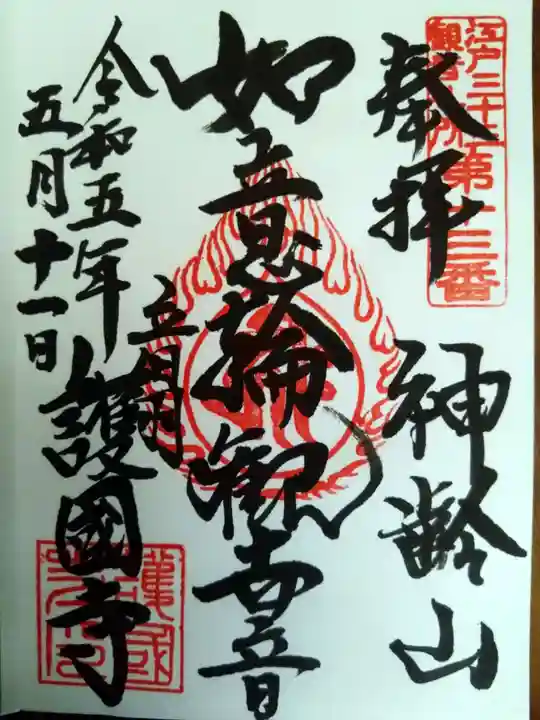 江戸三十三
観音札所第十三番
奉拝
神齢山
如意輪観世音
護國寺
令和五年
五月十一日